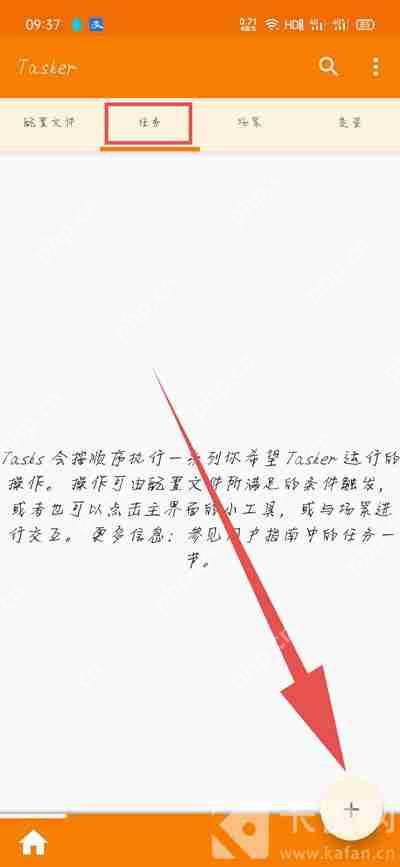 09:37
0.71
HD
4G
4G
85
Tasker
配置文件
任务
场景
变量
Tasks 会按顺序执行一系列你希望 Tasker 运行的
操作。操作可由配置文件所满足的条件触发,
或者也可以点击主界面的小工具, 或与场景进
行交互。更多信息: 参见用户指南中的任务一
节。
+
www.kafan.cn